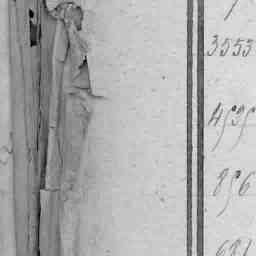 3553
4595
856
681